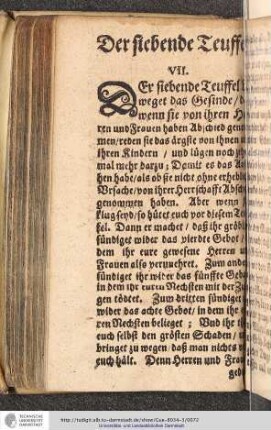 Der siebende Teuffe
VII.
DEr siebende Teuffel
weget das Gesinde/
wenn sie von ihren
ren und Frauen haben Abschied gen
men/reden sie das ärgste von ihnen
ihren Kindern / und lügen noch
mal mehr darzu; Damit es das
hen habe/als ob sie nicht ohne erhebli
Ursache/von ihrer Herrschafft Absch
genommen haben. Aber wenn
klug seyd/so hütet euch vor diesem Te
fel. Dann er machet / daß ihr gröbl
sündiget wider das vierdte Gebot /
dem ihr eure gewesene Herren
Frauen also verunehret. Zum and
sündiget ihr wider das fünffte Gebo
in dem ihr euren Nechsten mit der Zun
gen tödtet. Zum dritten sündiget
wider das achte Gebot / in dem ihr
ren Nechsten belieget; Und ihr
euch selbst den grösten Schaden /
bringet zu wegen daß man nichts
euch hält. Denn Herren und Frau
geb
TECHNISCHE
UNIVERSITÄT
DARMSTADT
http://tudigit.ulb.tu-darmstadt.de/show/Gue-8034-3/0072
Universitäts- und Landesbibliothek Darmstadt